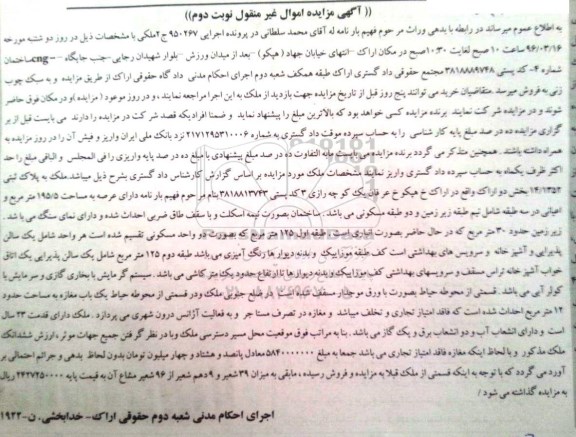 (( آگهی مزایده اموال غیر منقول نوبت دوم))
به اطلاع عموم میرساند در رابطه با بدهی وراث مرحوم فهیم بارنامه له آقای محمد سلطانی در پرونده اجرایی ۹۵۰۲۶۷ ج۲ملکی با مشخصات ذیل در روز دو شنبه مورخه
۹۶/۰۳/۱۶ ساعت ۱۰صبح لغایت ۱۰:۳۰صبح در مکان اراک -انتهای خیابان جهاد ( هپکو) -بعد از میدان ورزش -بلوار شهیدان رجایی -جنب جایگاه cng—ساختمان
شماره ۴- کد پستی ۳۸۱۸۸۸۹۷۴۸ مجتمع حقوقی داد گستری اراک طبقه همکف شعبه دوم اجرای احکام مدنی داد گاه حقوقی اراک از طریق مزایده و به سبک چوب
زنی به فروش میرسد .متقاضیان خرید می توانند پنج روز قبل از تاریخ مزایده جهت بازدید از ملک به این اجرا مراجعه نمایند ، و در روز موعود ( مزایده )و در مکان فوق حاضر
شوند و در مزایده شرکت نمایند برنده مزایده کسی خواهد بود که بالاترین مبلغ را پیشنهاد نماید و ضمنا افرادیکه قصد شرکت در مزایده را دارند می بایست قبل از بر
گزاری مزایده ده در صد مبلغ پایه کار شناسی را به حساب سپرده موقت داد گستری به شماره ۲۱۷۱۲۹۵۳۱۰۰۶ نزد بانک ملی ایران واریز و فیش آن را در روز مزایده به
همراه داشته باشند . همچنین متذکر می گردد برنده مزایده می بایست مابه التفاوت ده در صد مبلغ پیشنهادی با مبلغ ده در صد پایه واریزی را فی المجلس و الباقی مبلغ را حد
اکثر ظرف یکماه به حساب سپرده داد گستری واریز نماید. مشخصات ملک مورد مزایده بر اساس گزارش کارشناس داد گستری بشرح ذیل میباشد.ملک به پلاک ثبتی
بخش دو اراک واقع در اراک خ هپکو خ عرفان یک کو چه رازی ۳ کد پستی ۳۸۱۸۸۱۳۷۴۳ بنام مر حوم فهیم بار نامه دارای عرصه به مساحت ۱۹۵/۵ متر مربع و
اعیانی در سه طبقه شامل نیم طبقه زیر زمین و دو طبقه مسکونی می باشد . ساختمان بصورت نیمه اسکلت و با سقف طاق ضربی احداث شده و دارای نمای سنگ می باشد .
زیر زمین حدود ۳۰ متر مربع که در حال حاضر بصورت انباری است طبقه اول ۱۲۵ متر مربع که بصورت دو واحد مسکونی تقسیم شده است هر واحد شامل یک سالن
پذیرایی و آشپز خانه و سرویس های بهداشتی است کف طبقه موزاییک و بدنه دیوارها رنگ آمیزی می باشد طبقه دوم ۱۲۵ متر مربع شامل یک سالن پذیرایی یک اتاق
خواب آشپز خانه تراس مسقف و سرویسهای بهداشتی کف موزاییک و بدنه دیوار ها تا ارتفاع حدود یک متر کاشی می باشد . سیستم گرمایش با بخاری گازی و سرمایش با
کولر آبی می باشد . قسمتی از محوطه حیاط بصورت با ورق موجدار مسقف شده است در ضلع جنوبی ملک ودر قسمتی از محوطه حیاط یک باب مغازه به مساحت حدود
۱۲ متر مربع احداث شده است که فاقد امتیاز تجاری و تخلف میباشد و مغازه در تصرف مستا جر و به فعالیت آژانس درون شهری می پردازد . ملک دارای قدمت ۲۳ سال
است و دارای انشعاب آب و دو انشعاب برق و یک گاز می باشد . بنا به مراتب فوق موقعیت محل مسیر دسترسی ملک وبا در نظر گر فتن جمیع جهات موثر ،ارزش ششدانگ
ملک مذکور و با لحاظ اینکه مغازه فاقد امتیاز تجاری می باشد جمعا به مبلغ ۵۸۴۰۰۰۰۰۰۰ معادل پانصد و هشتاد و چهار میلیون تومان بدون لحاظ بدهی و جرائم احتمالی بر
آورد می گردد که با توجه به اینکه قسمتی از ملک قبلا به مزایده و فروش رسیده ، مابقی به میزان ۳۹ شعیر و ۹ دهم شعیر از ۹۶ شعیر مشاع آن به قیمت پایه ۲۴۲۷۲۵۰۰۰۰ ریال
به مزایده گذاشته می شود /
اجرای احکام مدنی شعبه دوم حقوقی اراک- خدابخشی .ن-۱۹۲۲